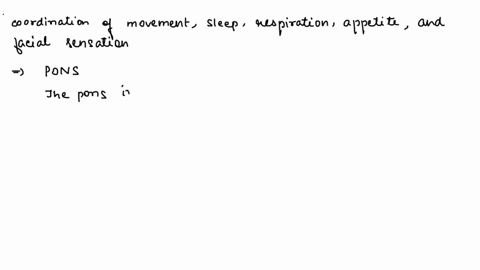 coordination of movement, sleep, respiration, appetite, and
facial sensation
⇒ PONS
The pons i